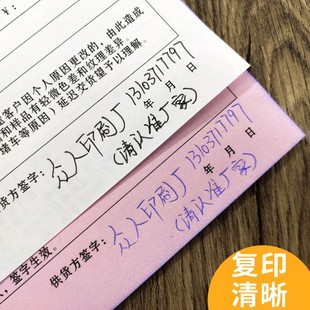 ¥：
客户因个人原因更改的，由此造成
和样品有轻微色差和纹理差异。
堵车等原因）延迟交货望予以理解。
供货方签字：众人印刷厂 13103711797
年 月 日
（请认准厂家）
，签字生效。
供货方签字：众人印刷厂 13103711797
年 月 日
（请认准厂家）
复印
清晰